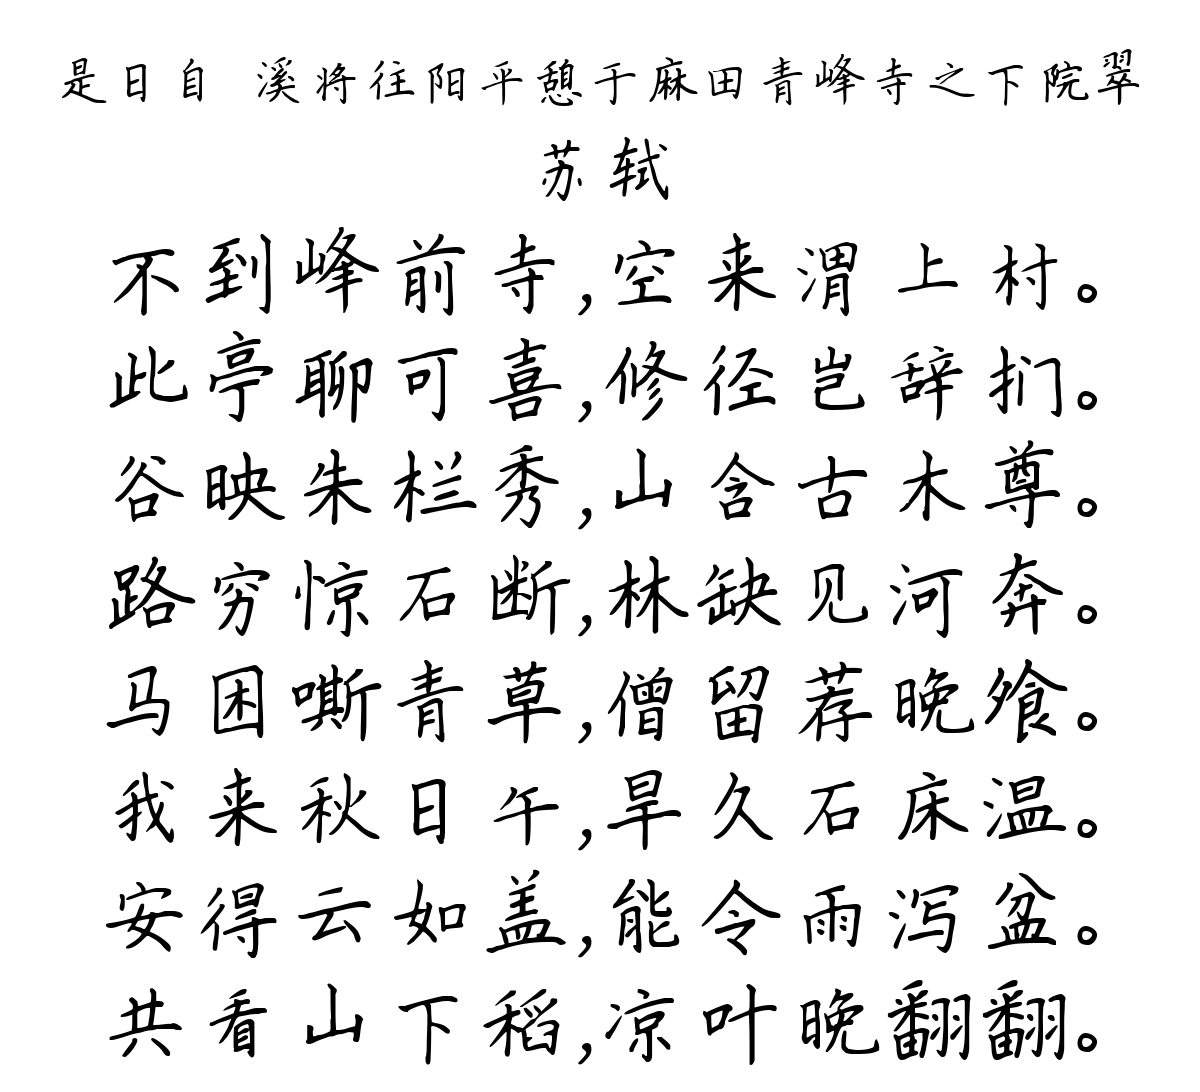 是日自 溪将往阳平憩于麻田青峰寺之下院翠
苏轼
不到峰前寺,空来渭上村。
此亭聊可喜,修径岂辞扪。
谷映朱栏秀,山含古木尊。
路穷惊石断,林缺见河奔。
马困嘶青草,僧留荐晚飧。
我来秋日午,旱久石床温。
安得云如盖,能令雨泻盆。
共看山下稻,凉叶晚翻翻。